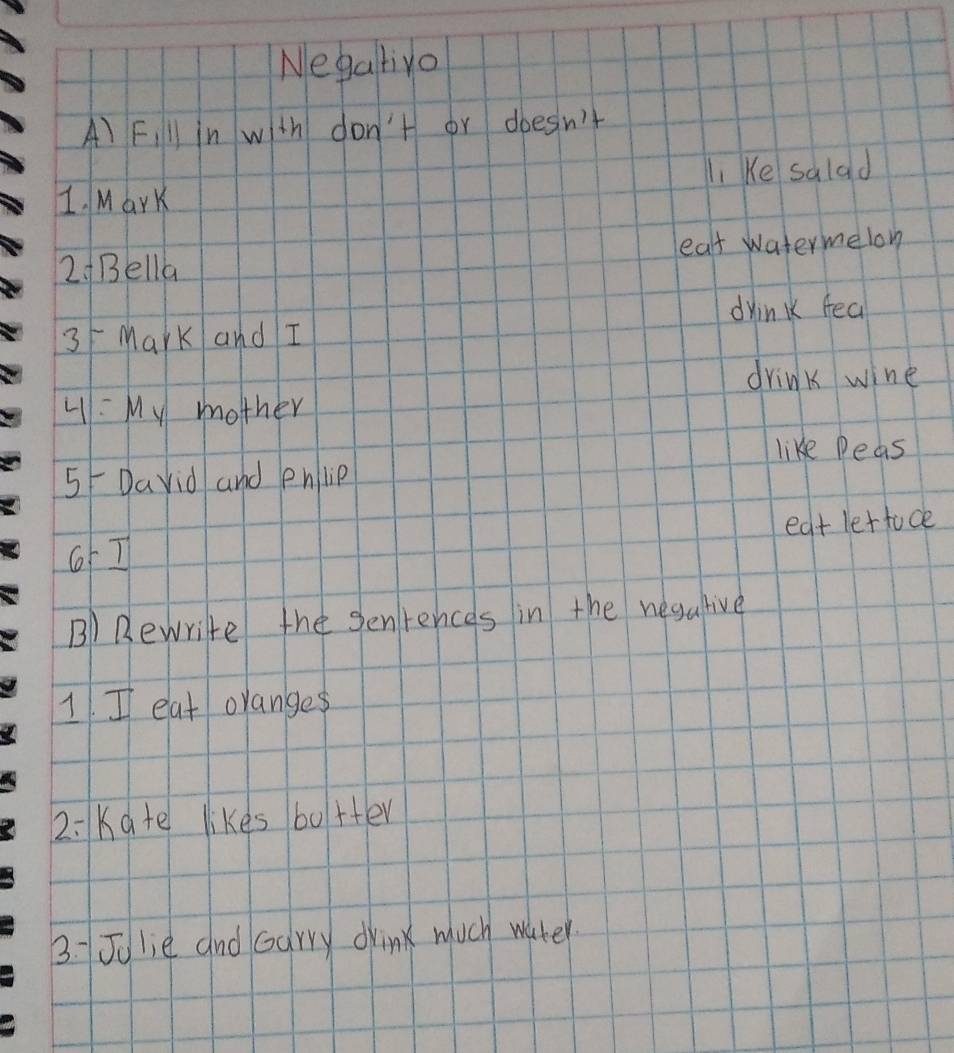 Negativo
A) Fill in with don't or doesn't
1. Mark like salad
2.- Bella eat watermelon
3- Mark and I drink tea
4- My mother drink wine
5- David and Philip like Peas
6.- I eat lettuce
B) Rewrite the sentences in the negative
1. I eat oranges
2.- Kate likes butter
3.- Julie and Garry drink much water.